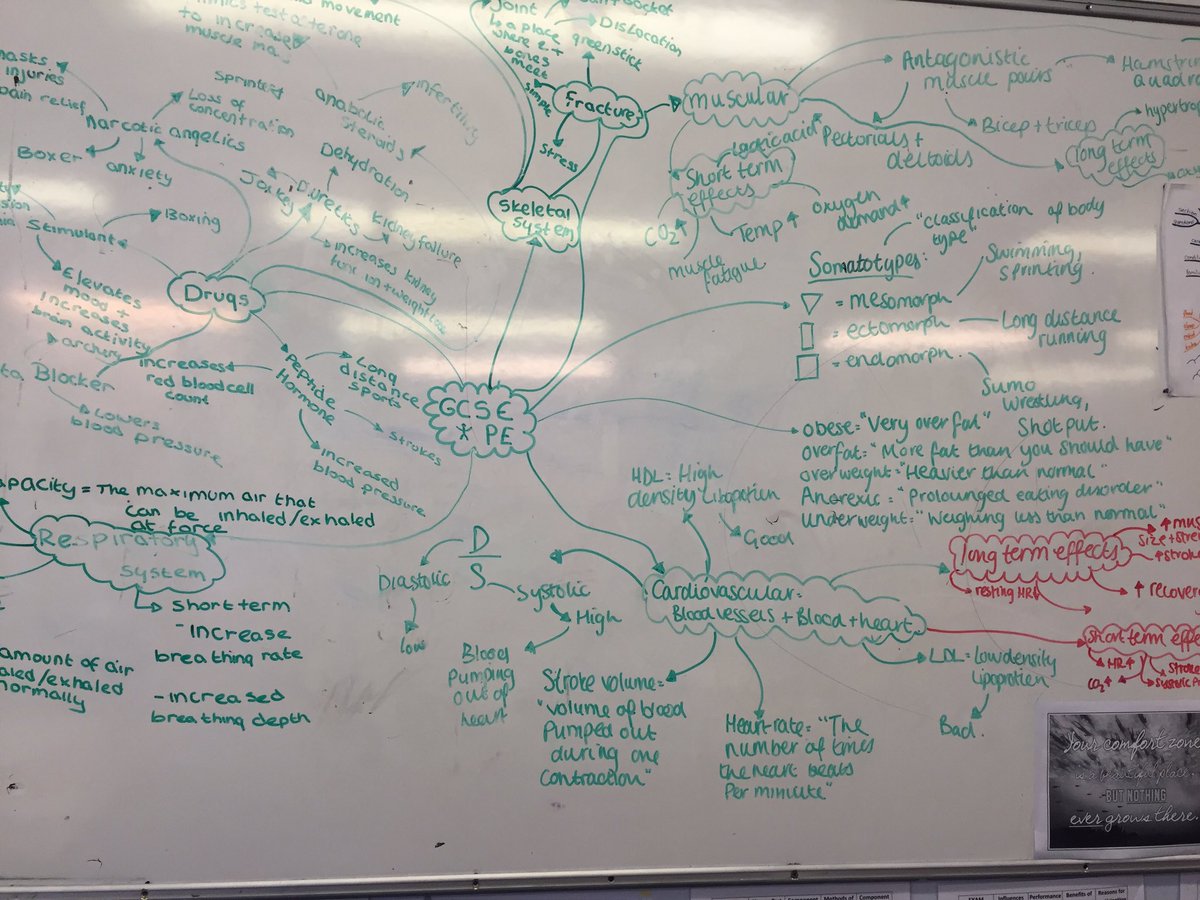 to increase
muscle ma
movement
masks
injuries
pain relief
Narcotic angelics
Boxer
anxiety
Sprinters
Loss of
concentration
Anabolic
Steroids
infertility
Dehydration
Jockey
Diuretics
kidney failure
increases kidney
function + weight loss
Stimulant
Boxing
Elevates
mood +
increases
brain activity
Drugs
archery
ta Blocker
Lowers
blood pressure
increases
red blood cell
count
Peptide
Hormone
Long
distance
sports
Strokes
increased
blood pressure
Joint
a place
where 2+
bones
meet
greenstick
Dislocation
simple
Fracture
Stress
Skeletal
System
GCSE
PE
muscular
Antagonistic
muscle pairs
Hamstrin
Quadri
Bicep + tricep
Pectorials +
deltoids
hypertrop
long term
effects
Lactic acid
Short term
effects
CO2↑
Temp↑
oxygen
demand↑
muscle
fatigue
Somatotypes:
"classification of body
type".
= mesomorph
Swimming,
sprinting.
= ectomorph
Long distance
running
= endomorph.
Sumo
Wrestling,
Shot put.
obese = "Very over fat"
overfat = "More fat than you should have"
overweight = "Heavier than normal"
Anorexic = "Prolounged eating disorder"
underweight = "Weighing less than normal"
apacity = The maximum air that
can be inhaled/exhaled
at force
Respiratory
system
Short term
- increase
breathing rate
- increased
breathing depth
amount of air
aled/exhaled
normally
D
S
Diastolic
low
Systolic
High
Blood
Pumping
out of
heart
HDL = High
density Lipopation
Good
Cardiovascular =
Blood vessels + Blood + heart
Stroke volume =
"volume of blood
Pumped out
during one
contraction"
Heart rate = "The
number of times
the heart beats
Per minute"
LDL = Low density
Lipoprotien
Bad.
long term effects
↑ mus
size + stren
↑ stroke
resting HR↓
↑ recover
Short term effe
HR↑
CO2↑
Stroke
Systolic Pr
Your comfort zone
is a beautiful place,
BUT NOTHING
ever grows there.
EXAM
Influences
Performance
Benefits of
Reasons for
Component
Methods of
Component